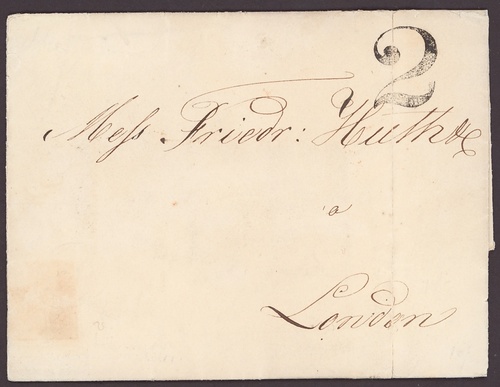 2
Mess Friedr: Huth &c
a
London